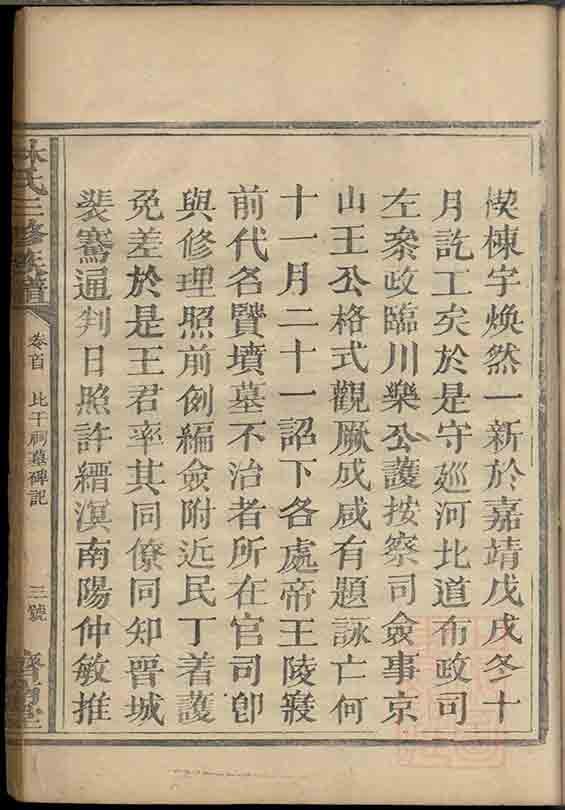 楔棟宇煥然一新於嘉靖戊戌冬十
月訖工矣於是守廵河北道布政司
左叅政臨川樂公護按察司僉事京
山王公格式觀厥成咸有題詠亡何
十一月二十一詔下各處帝王陵寢
前代名賢墳墓不治者所在官司卽
與修理照前例編僉附近民丁着護
免差於是王君率其同僚同知晉城
裴騫通判日照許縉滇南陽仲敏推
林氏三修族譜
卷首
比干祠墓碑記
三號